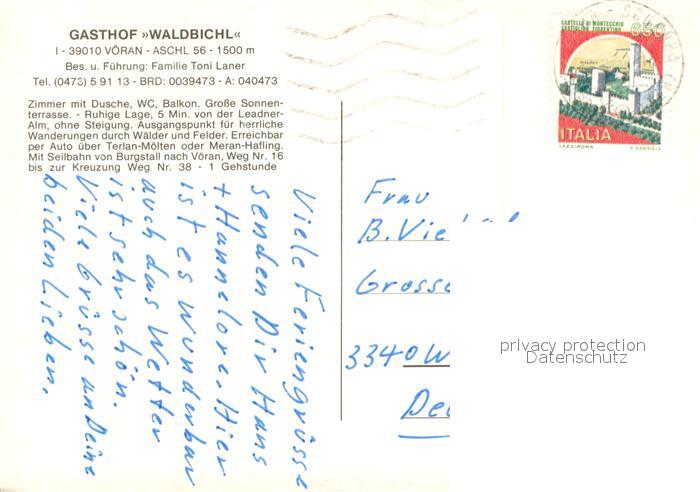 GASTHOF »WALDBICHL«
I - 39010 VÖRAN - ASCHL 56 - 1500 m
Bes. u. Führung: Familie Toni Laner
Tel. (0473) 5 91 13 - BRD: 0039473 - A: 040473
Zimmer mit Dusche, WC, Balkon. Große Sonnen-
terrasse. - Ruhige Lage, 5 Min. von der Leadner-
Alm, ohne Steigung. Ausgangspunkt für herrliche
Wanderungen durch Wälder und Felder. Erreichbar
per Auto über Terlan-Mölten oder Meran-Hafling.
Mit Seilbahn von Burgstall nach Vöran, Weg Nr. 16
bis zur Kreuzung Weg Nr. 38 - 1 Gehstunde
Viele Feriengrüsse
senden Dir Hans
+ Hannelore. Hier
ist es wunderbar
auch das Wetter
ist sehr schön.
Viele Grüsse an Deine
beiden Lieben.
CASTELLO DI MONTECCHIO
CASTIGLION FIORENTINO
650
ITALIA
I.P.Z.S.-ROMA
Frau
B. Vie
Grosse
3340 W
De
privacy protection
Datenschutz